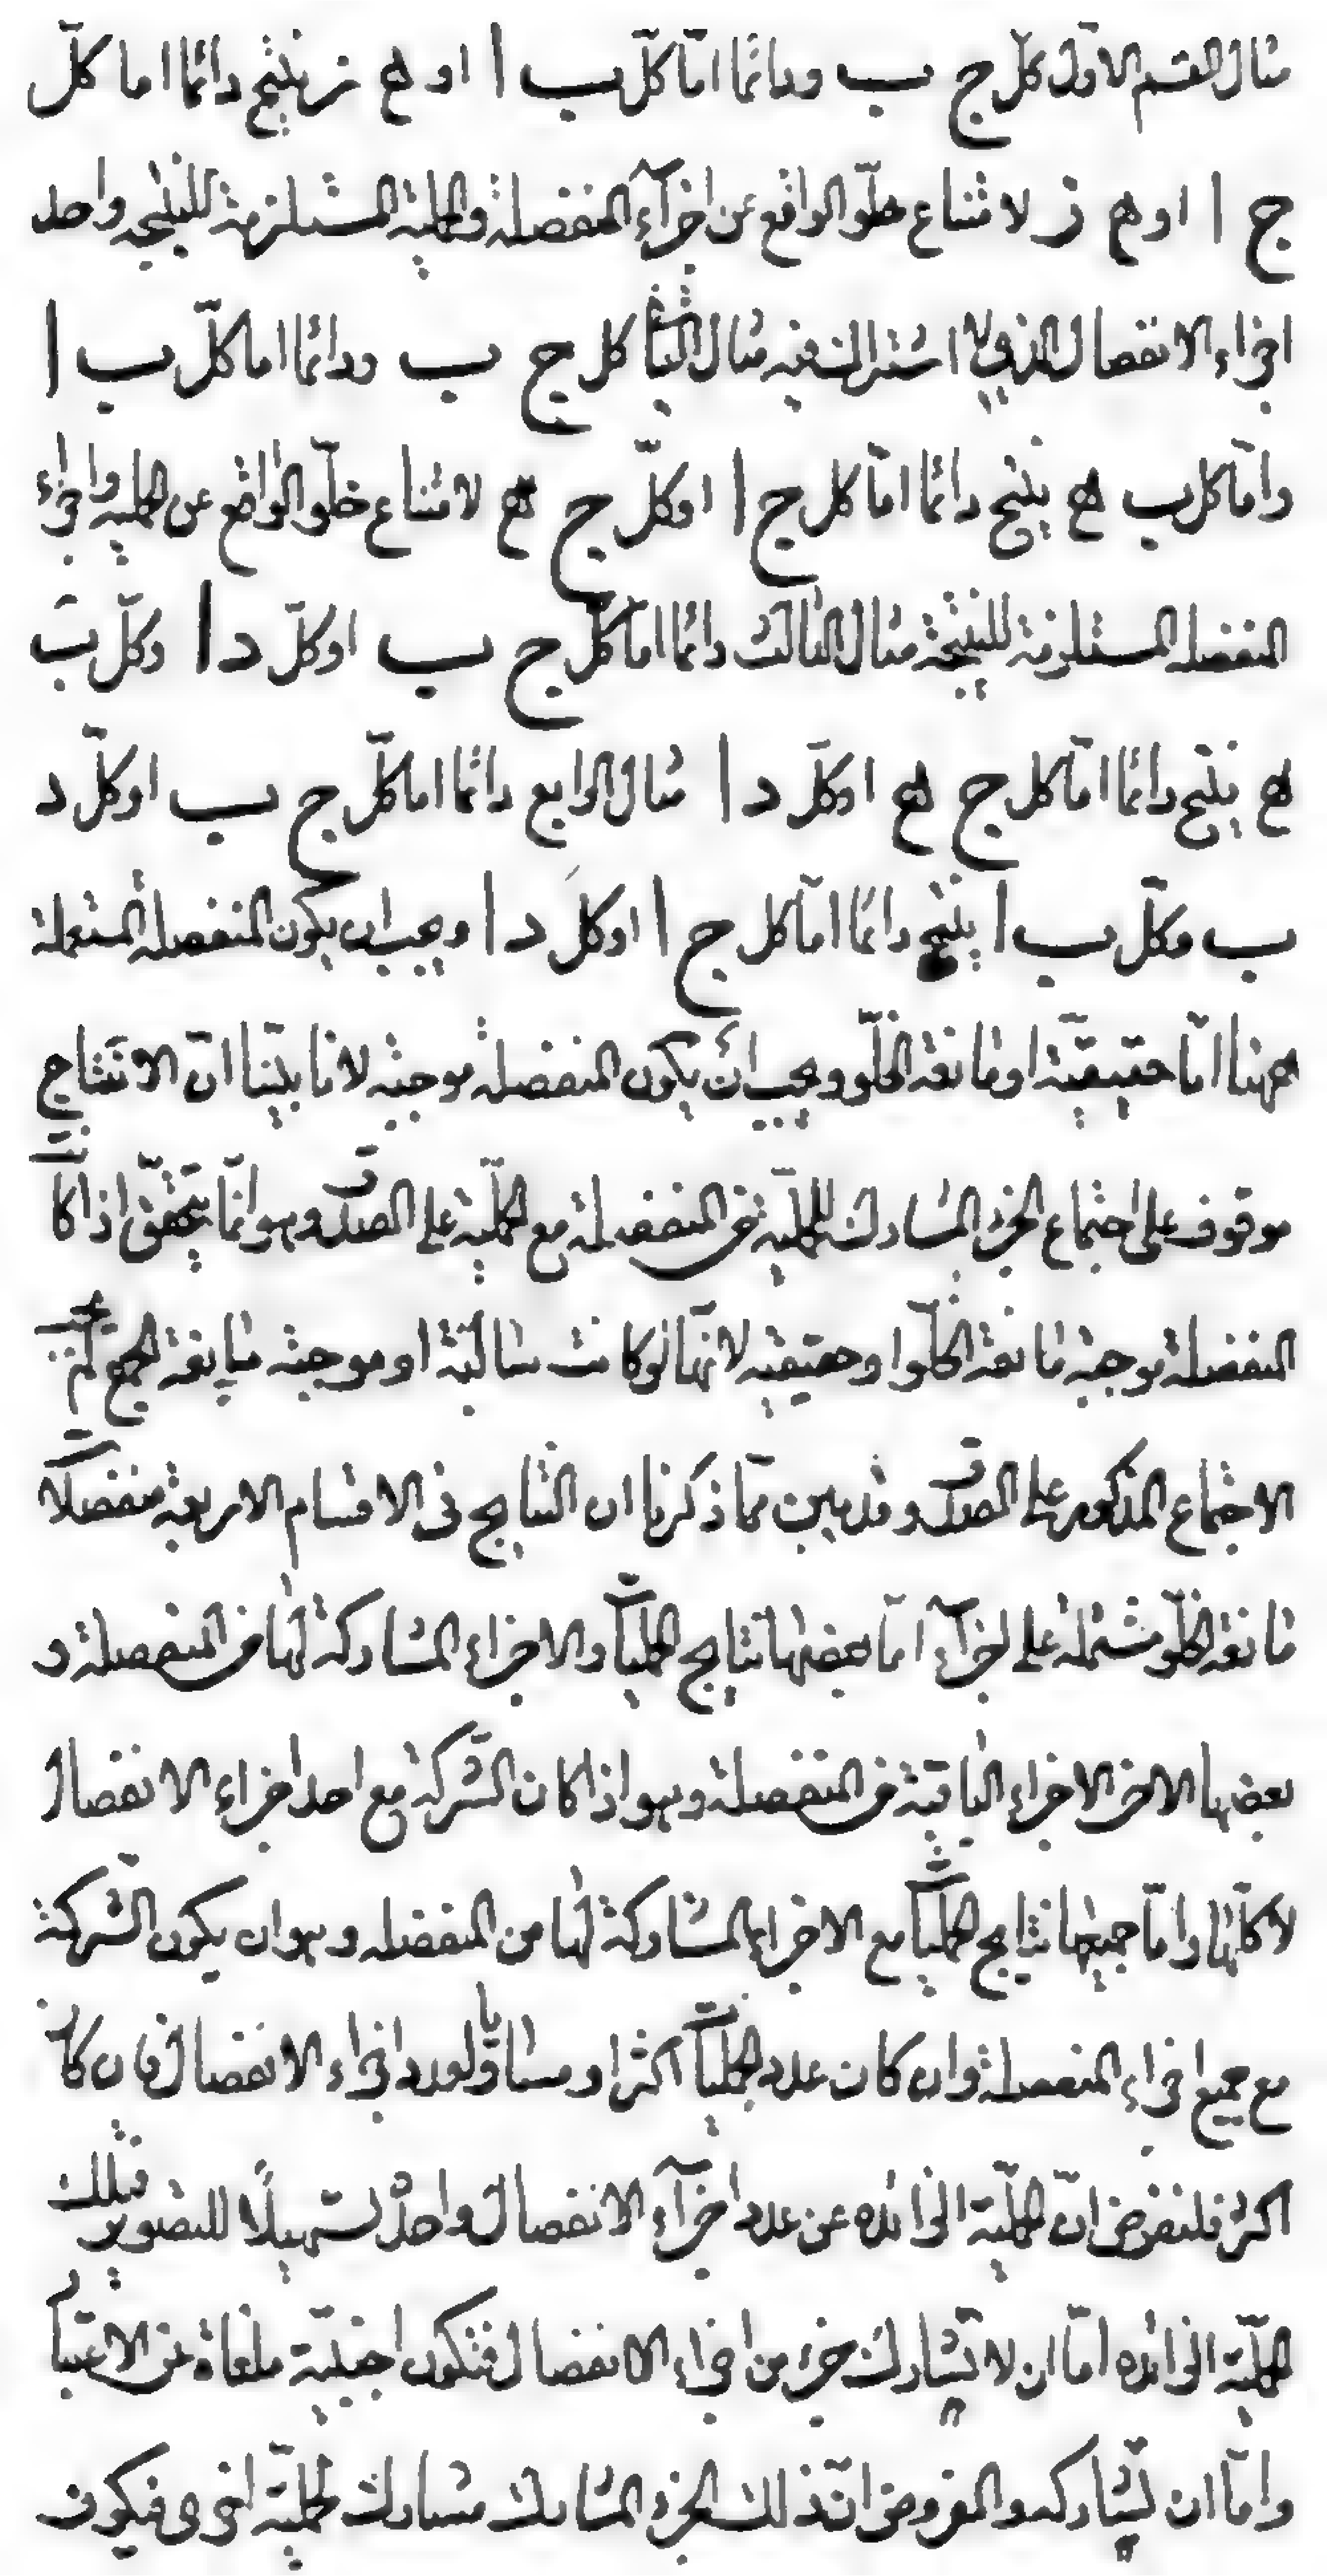 مثال القسم الاول كلّ ج ب ودائما امّا كلّ ب ا او ه ز ينتج دائما اما كلّ
ج ا او ه ز لامتناع خلوّ الواقع عن اجزآء المنفصلة والحملية المستلزمة للنتيجه واحد
اجزاء الانفصال الذى لا اشتراك فيه مثال الثانى كل ج ب ودائما اما كلّ ب ا
وامّا كل ب ه ينتج دائما امّا كل ج ا اوكلّ ج ه لامتناع خلوّ الواقع عن الحمليه واجزاء
المنفصله المستلزمة للنتيجة مثال الثالث دائما اما كلّ ج ب اوكلّ د ا وكلّ ب
ه ينتج دائما امّا كل ج ه اوكلّ د ا مثال الرابع دائما اما كلّ ج ب اوكلّ د
ب وكلّ ب ا ينتج دائما امّا كل ج ا اوكلّ د ا ويجب ان يكون المنفصلة المستعملة
ههنا امّا حقيقيّة او مانعة الخلوّ ويجب ان يكون المنفصلة موجبة لانا بيّنا انّ الانتاج
موقوف على اجتماع الجزء المشارك للحمليّة من المنفصلة مع الحمليّة على الصدق وهو انّما يتحقّق اذا كانت
المنفصلة موجبة مانعة الخلوّ او حقيقيه لانّها لو كانت سالبة او موجبة مانعة الجمع لم يجب
الاجتماع المذكور على الصدق وقد تبين ممّا ذكرنا ان النتايج فى الاقسام الاربعة منفصلات
مانعة الخلوّ مشتملة على اجزآء امّا بعضها نتايج الحمليات والاجزاء المشاركة لها من المنفصلة و
بعضها الاخر الاجزاء الباقية من المنفصلة وهو اذا كان الشّركة مع احد اجزاء الانفصال
لا كلّها وامّا جميعها نتايج الحمليات مع الاجزاء المشاركة لها من المنفصله وهو ان يكون الشّركة
مع جميع اجزاء المنفصلة وان كان عدد الحمليات اكثر او مساويا لعدد اجزاء الانفصال فان كانت
اكثر فلنفرض انّ الحمليّة الزائده عن عدد اجزآء الانفصال واحدة تسهيلًا للتصوير فتلك
الحمليّة الزائده امّا ان لا يشارك جزء من اجزاء الانفصال فتكون اجنبيّة ملغاة عن الاعتبار
وامّا ان يشاركه والمفروض انّ ذلك الجزء المشارك مشارك لحمليّة اخرى فيكون